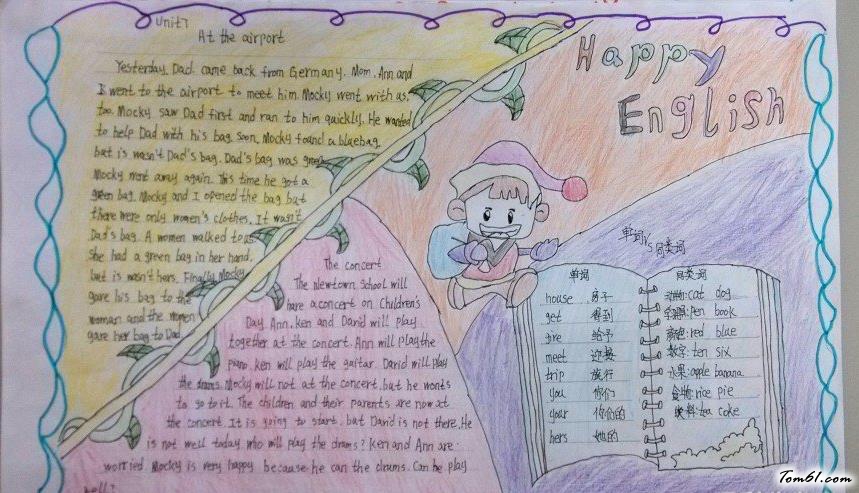 Unit7
At the airport
Yesterday, Dad came back from Germany. Mom, Ann and
I went to the airport to meet him. Mocky went with us,
too. Mocky saw Dad first and ran to him quickly. He wanted
to help Dad with his bag. Soon, Mocky found a bluebag.
but is wasn't Dad's bag. Dad's bag was green
Mocky went away again. This time he got a
green bag. Mocky and I opened the bag but
there were only women's clothes. It wasn't
Dad's bag. A women walked to us
She had a green bag in her hand.
but is wasn't hers. Finally Mocky
gave his bag to the
woman and the women
gave her bag to Dad
The concert
The Newtown School will
have a concert on Children's
Day. Ann, ken and David will play
together at the concert. Ann will play the
piano. ken will play the guitar. David will play
the drums. Mocky will not at the concert, but he wants
to go to it. The children and their parents are now at
the concert. It is going to start, but David is not there. He
is not well today who will play the drams? Ken and Ann are
worried Mocky is very happy because he can the drums. Can he play
well?
Happy
English
单词VS同类词
单词
house 房子
get 得到
give 给予
meet 迎接
trip 旅行
you 你们
your 你们的
hers 她的
同类词
动物:cat dog
pen book
颜色:red blue
数字:ten six
水果:apple banana
食物:rice pie
饮料:tea coke
Tom61.com